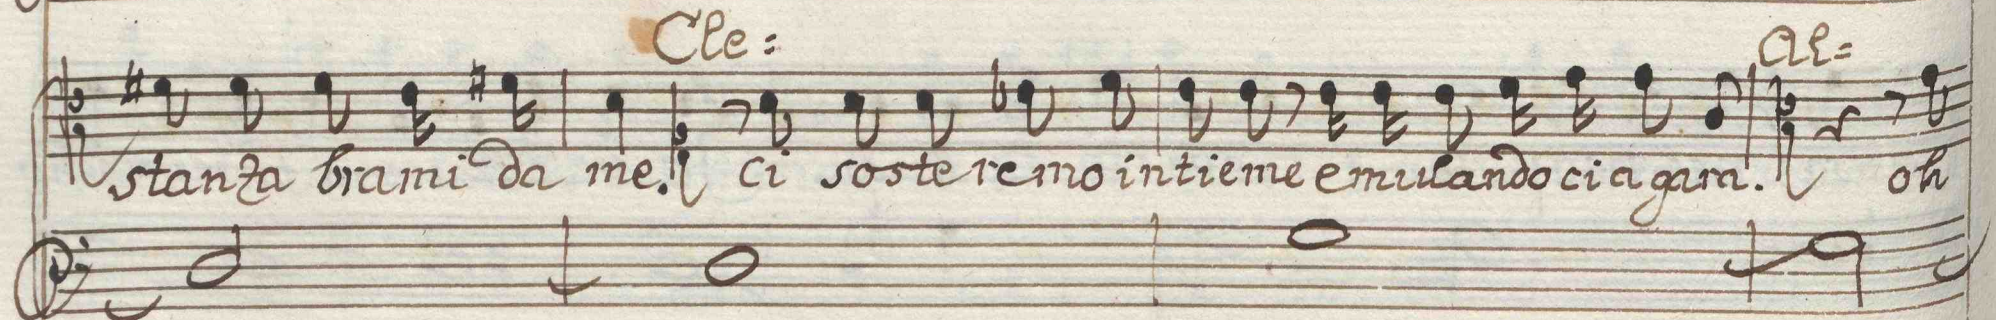 Cle= Al=
stanza brami da me. ci sosteremo intieme emulandoci a gara. oh